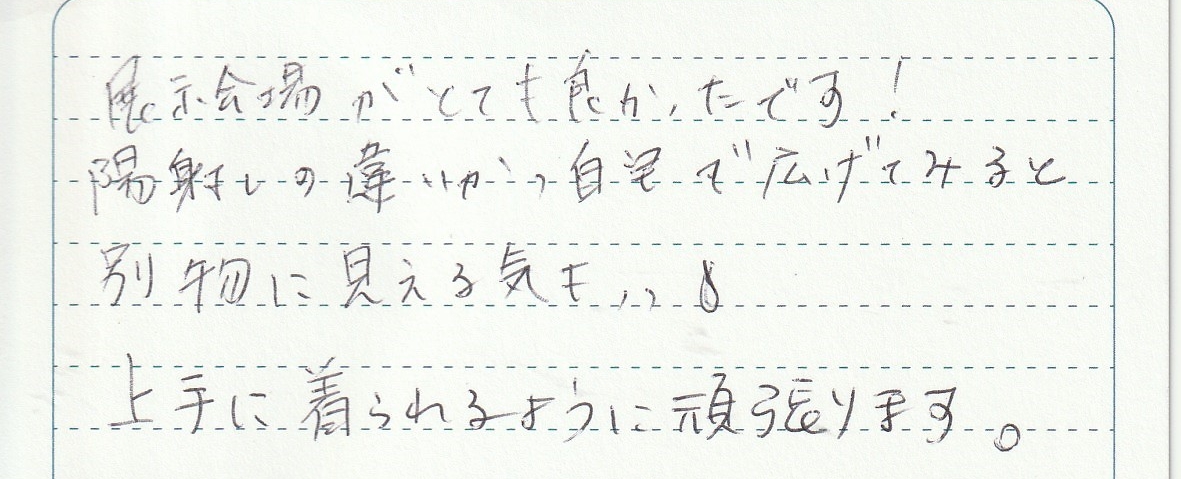 展示会場がとても良かったです!
陽射しの違いか、自宅で広げてみると
別物に見える気も、、
上手に着られるように頑張ります。